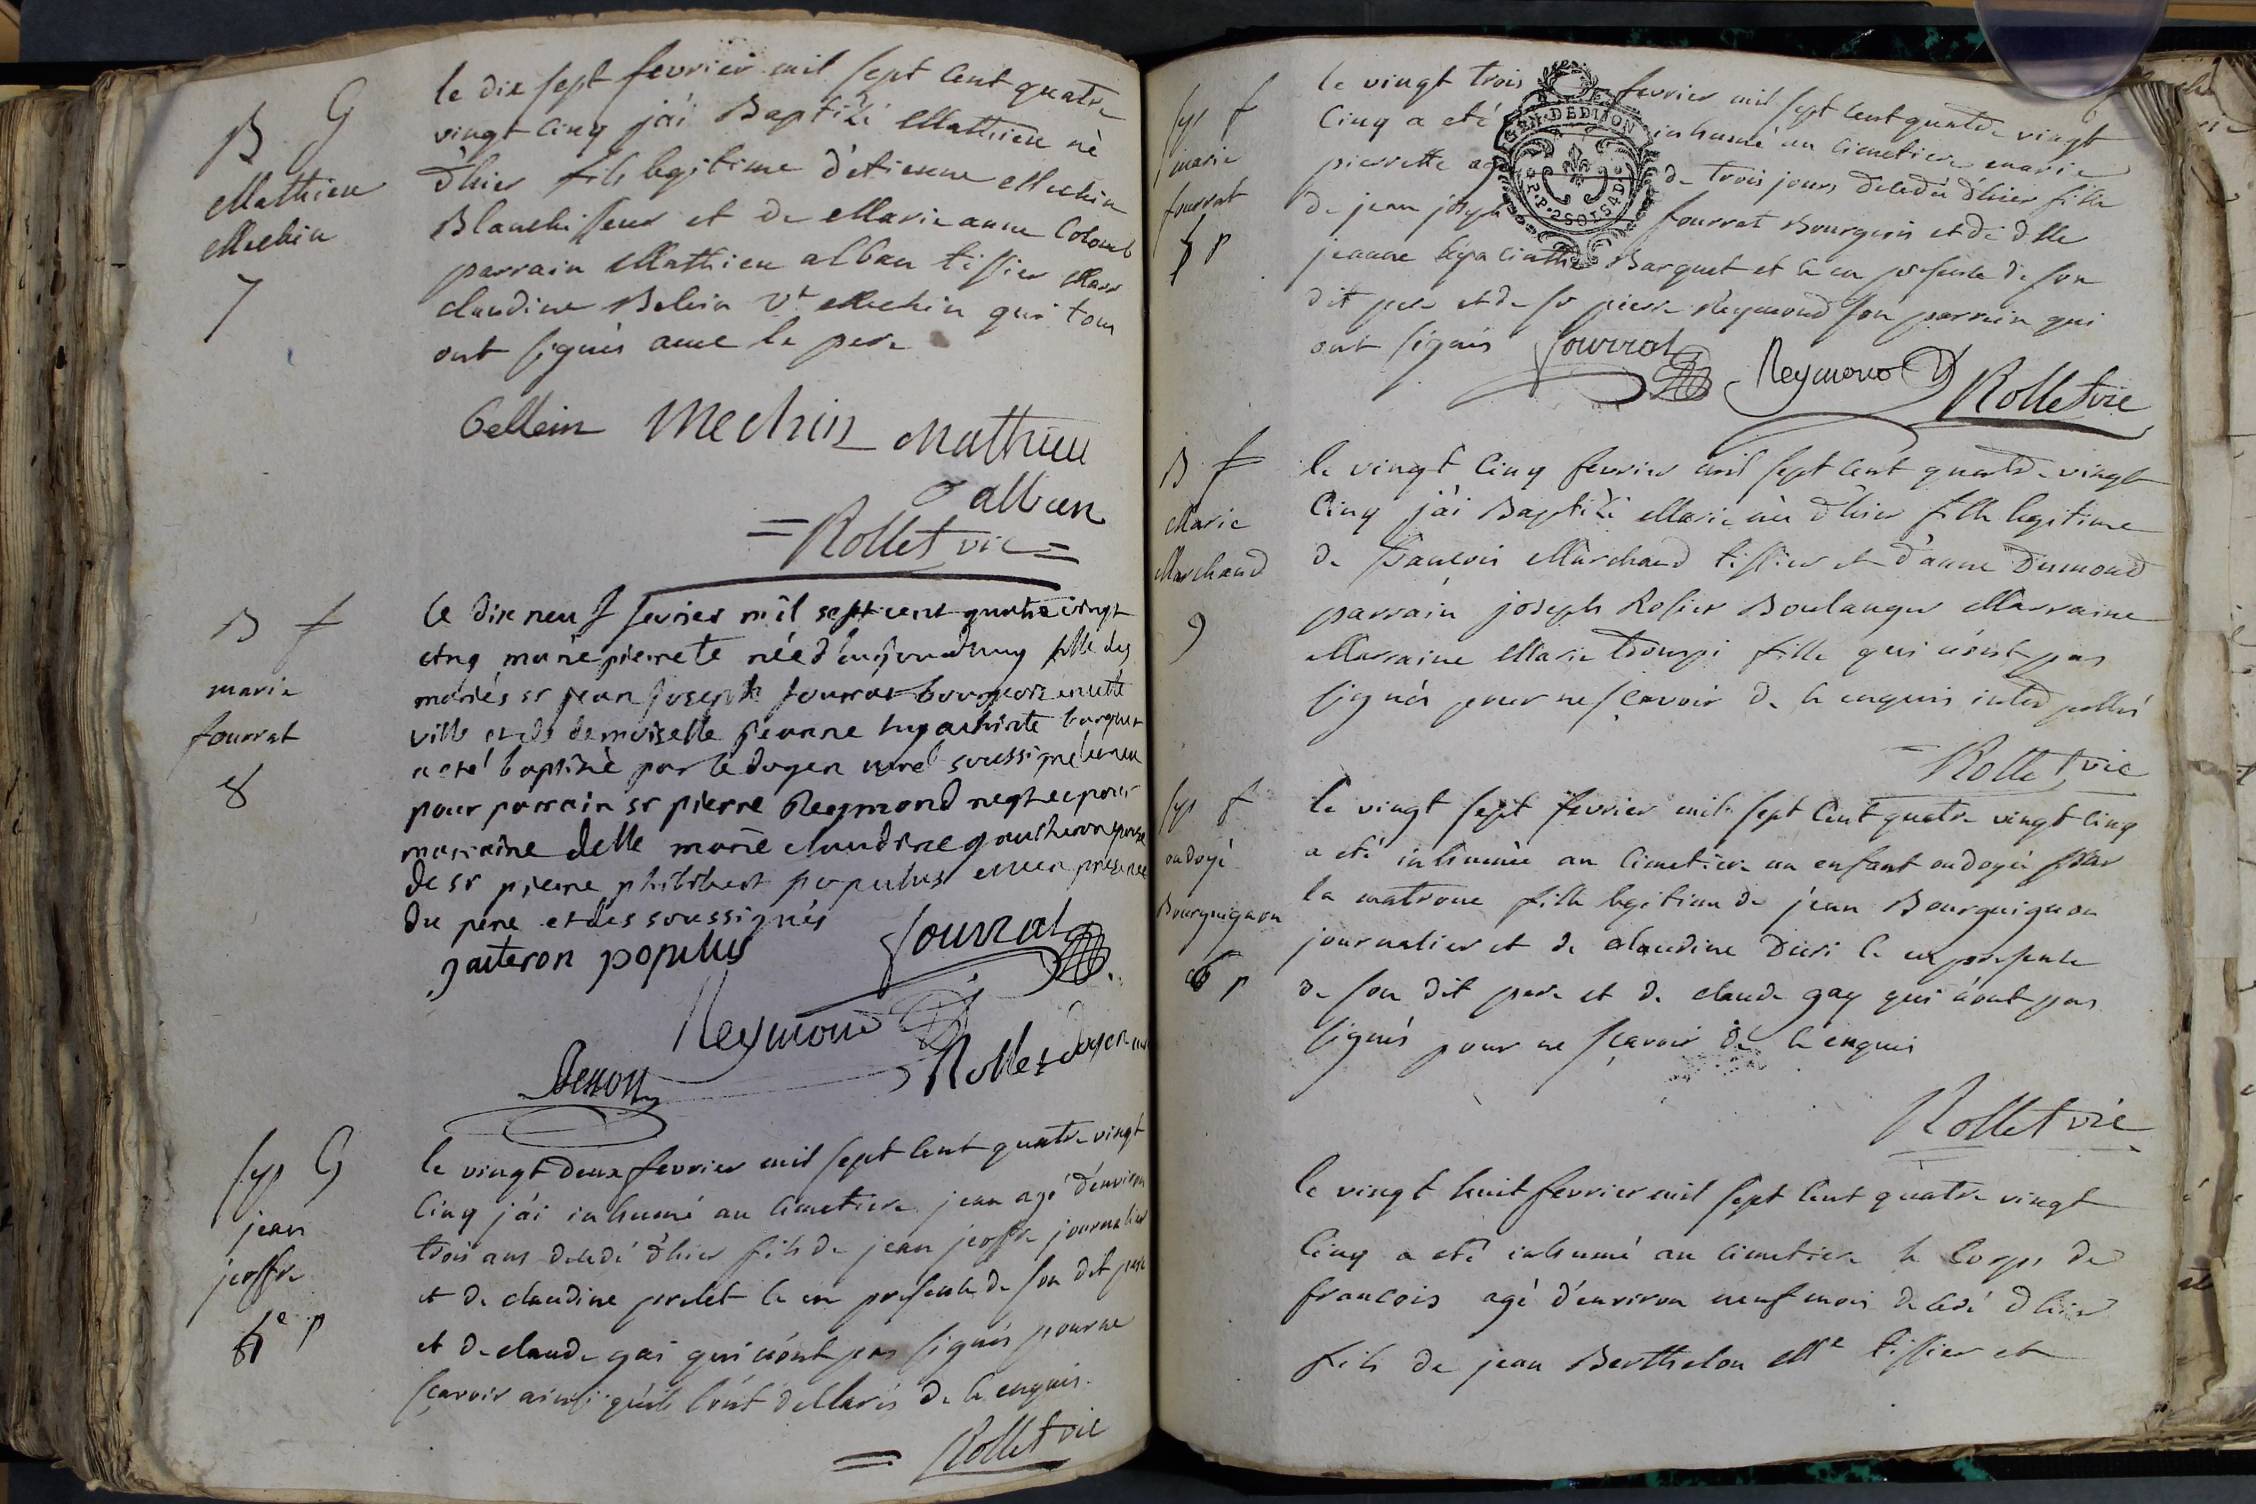 B G
Mathieu
Mechin
7
le dix sept fevrier mil sept cent quatre
vingt cinq j'ai Baptizé Mathieu né
d'hier fils legitime d'étienne Mechin
Blanchisseur et de Marie anne Colomb
parrain Mathieu alban tissier Marr
claudine Belin Vt Mechin qui tous
ont signés avec le pere
bellein Mechin Mathieu
alban
= Rollet vic =
B f
marie
fourrat
8
le dix neuf fevrier mil sept cent quatre vingt
cinq marie pierrete née d'aujourdhuy fille des
mariés sr jean joseph fourrat bourgeois en cette
ville et de demoiselle jeanne hyacinte barquet
a eté baptisée par le doyen curé soussigné
pour parrain sr pierre Reymond neg et pour
marraine delle marie claudine gauteron epouse
de sr pierre philibert populus et en presence
du pere et des soussignés
gauteron populus fourrat
Reymond
Besson Rollet doyen curé
sep G
jean
jeoffre
p
le vingt deux fevrier mil sept cent quatre vingt
cinq j'ai inhumé au cimetiere jean agé d'environ
trois ans décédé d'hier fils de jean jeoffre journalier
et de claudine perlet le en presence de son dit pere
et de claude gai qui n'ont pas signés pour ne
sçavoir ainsi qu'ils l'ont declarés de ce enquis.
= Rollet vic
sep f
marie
fourrat
p
le vingt trois fevrier mil sept cent quatre vingt
cinq a eté inhumé au cimetiere marie
pierrette agée de trois jours décédée d'hier fille
de jean joseph fourrat Bourgeois et de dlle
jeanne hyacinthe Barquet et le en presence de son
dit pere et de sr pierre Reymond son parrain qui
ont signés fourrat Reymond Rollet vic
GEN. DE DIJON
P.P. 2 SOLS 4 D.
B f
Marie
Marchand
9
le vingt cinq fevrier mil sept cent quatre vingt
cinq j'ai Baptizé Marie née d'hier fille legitime
de francois Marchand tissier et d'anne Dumond
parrain joseph Rosier Boulanger Marraine
Marraine Marie fille qui n'ont pas
signés pour ne sçavoir de ce enquis interpellés
= Rollet vic
sep f
ondoyé
Bourguignon
p
le vingt sept fevrier mil sept cent quatre vingt cinq
a eté inhumée au cimetiere un enfant ondoyée par
la matrone fille legitime de jean Bourguignon
journalier et de claudine Duri le en presence
de son dit pere et de claude gay qui n'ont pas
signés pour ne sçavoir de ce enquis
Rollet vic
le vingt huit fevrier mil sept cent quatre vingt
cinq a eté inhumé au cimetiere le corps de
francois agé d'environ neuf mois decedé d'hier
fils de jean Berthelon Me tissier et